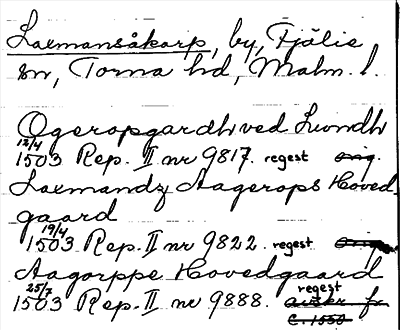 Laxmansåkarp, by, Fjälie
sn, Torna hd, Malm. l.
Ogeropgardh ved Lwndh
12/4
1503 Rep. II nr 9817. regest orig.
Laxmandz Aagerops Hoved-
gaard
19/4
1503 Rep. II nr 9822. regest orig.
Aagorppe Hovedgaard
25/7 regest
1503 Rep. II nr 9888. avskr. fr.
c. 1550